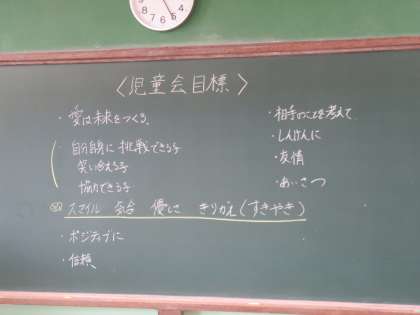 〈児童会目標〉
・愛は未来をつくる
・自分自身に挑戦できる子
笑い合える子
協力できる子
スマイル 気合 優しさ きりかえ(すきやき)
・ポジティブに
・信頼
・相手のことを考えて
・しんけんに
・友情
・あいさつ